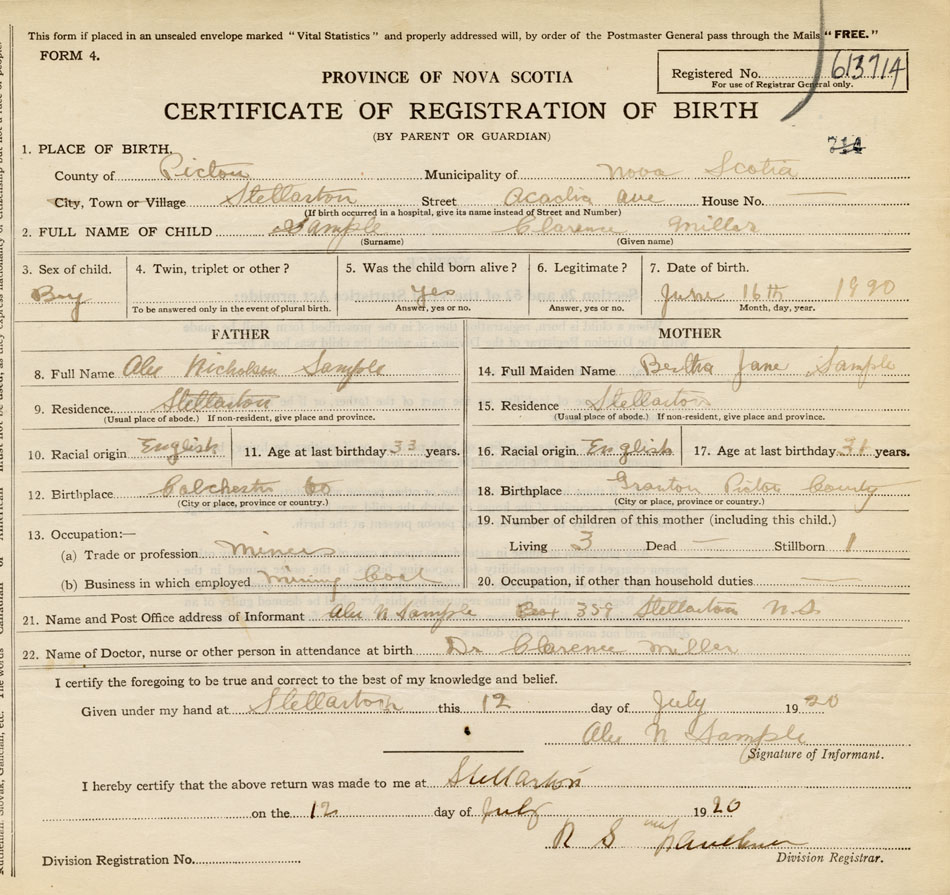 This form if placed in an unsealed envelope marked "Vital Statistics" and properly addressed will, by order of the Postmaster General pass through the Mails "FREE."
FORM 4.
PROVINCE OF NOVA SCOTIA
Registered No. 613714
For use of Registrar General only.
CERTIFICATE OF REGISTRATION OF BIRTH
(BY PARENT OR GUARDIAN)
1. PLACE OF BIRTH.
County of Pictou Municipality of Nova Scotia
City, Town or Village Stellarton Street Acadia Ave House No. —
(If birth occurred in a hospital, give its name instead of Street and Number)
2. FULL NAME OF CHILD Sample Clarence Millar
(Surname) (Given name)
3. Sex of child. 4. Twin, triplet or other? 5. Was the child born alive? 6. Legitimate? 7. Date of birth.
Boy Yes June 16th 1920
To be answered only in the event of plural birth. Answer, yes or no. Answer, yes or no. Month, day, year.
FATHER MOTHER
8. Full Name Alex Nicholson Sample
14. Full Maiden Name Bertha Jane Sample
9. Residence. Stellarton
(Usual place of abode.) If non-resident, give place and province.
15. Residence Stellarton
(Usual place of abode.) If non-resident, give place and province.
10. Racial origin English 11. Age at last birthday 33 years.
16. Racial origin English 17. Age at last birthday years.
12. Birthplace Colchester Co
(City or place, province or country.)
18. Birthplace Granton Pictou County
(City or place, province or country.)
13. Occupation:—
(a) Trade or profession Miner
(b) Business in which employed Mining Coal
19. Number of children of this mother (including this child.)
Living 3 Dead — Stillborn 1
20. Occupation, if other than household duties —
21. Name and Post Office address of Informant Alex N Sample Box 359 Stellarton N.S.
22. Name of Doctor, nurse or other person in attendance at birth Dr Clarence Miller
I certify the foregoing to be true and correct to the best of my knowledge and belief.
Given under my hand at Stellarton this 12 day of July 1920
Alex N Sample
Signature of Informant.
I hereby certify that the above return was made to me at Stellarton
on the 12 day of July 1920
R S
Division Registration No. Division Registrar.